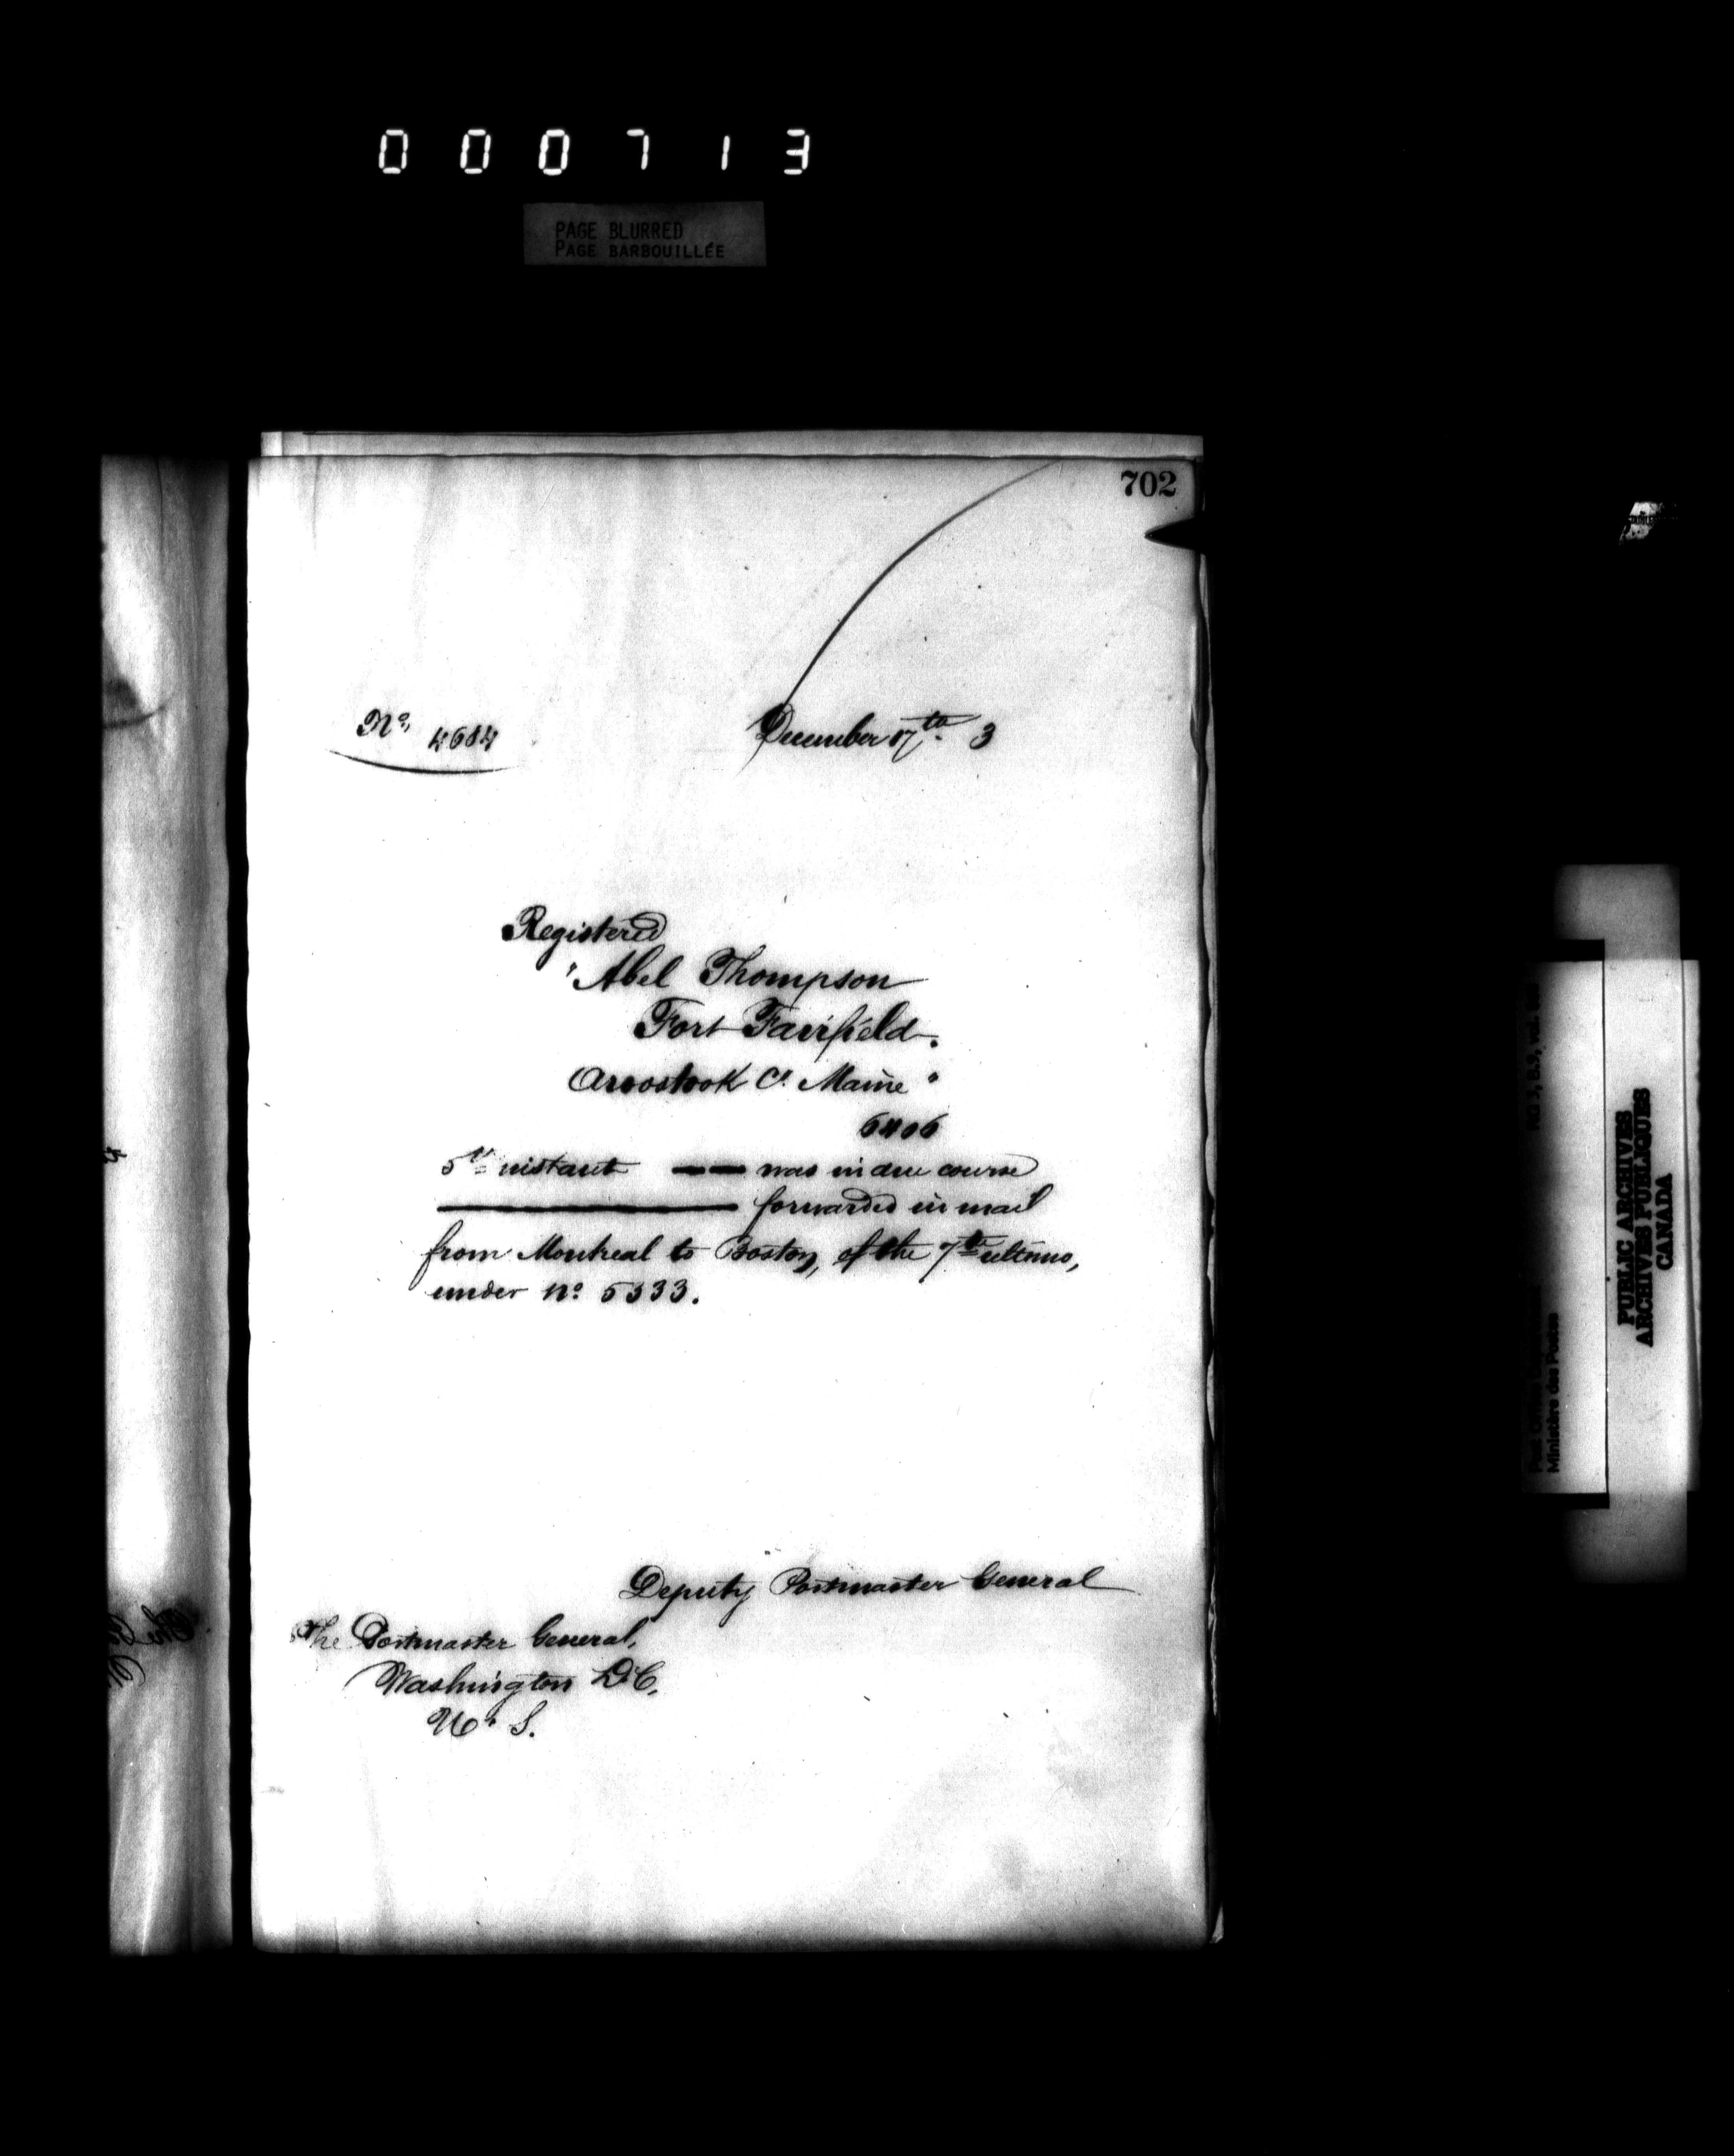 000713
PAGE BLURRED
PAGE BARBOUILLÉE
702
No. 4684
December 17th 3
Registered
"Abel Thompson
Fort Fairfield.
Aroostook Co. Maine"
6406
5th instant — — was in due course
— forwarded in mail
from Montreal to Boston, of the 7th ultimo,
under No. 5333.
Deputy Postmaster General
The Postmaster General,
Washington D.C.
U. S.
PUBLIC ARCHIVES
ARCHIVES PUBLIQUES
CANADA
Ministère des Postes